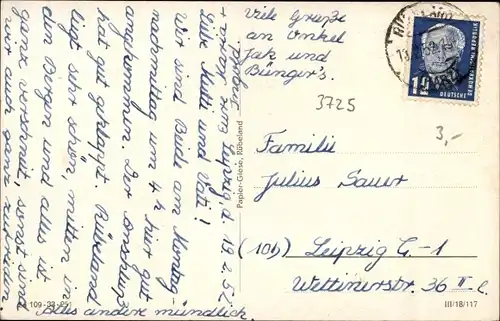 Liebe Mutti und Vati!
Wir sind Beide am Montag-
nachmittag um 4 h hier gut
angekommen. Der Anschluß
hat gut geklappt. Rübeland
liegt sehr schön, mitten in
den Bergen und alles ist
ganz verschneit, sonst sind
wir auch ganz zufrieden.
Alles andere mündlich.
d. 19.2.52
Viele Grüße
an Onkel
Jak und
Bunger's.
3725
3,-
Familie
Julius Sauer
(10b) Leipzig C-1
Wettinerstr. 36 II r.
Papier-Giese, Rübeland
III/18/117
DEUTSCHE
12